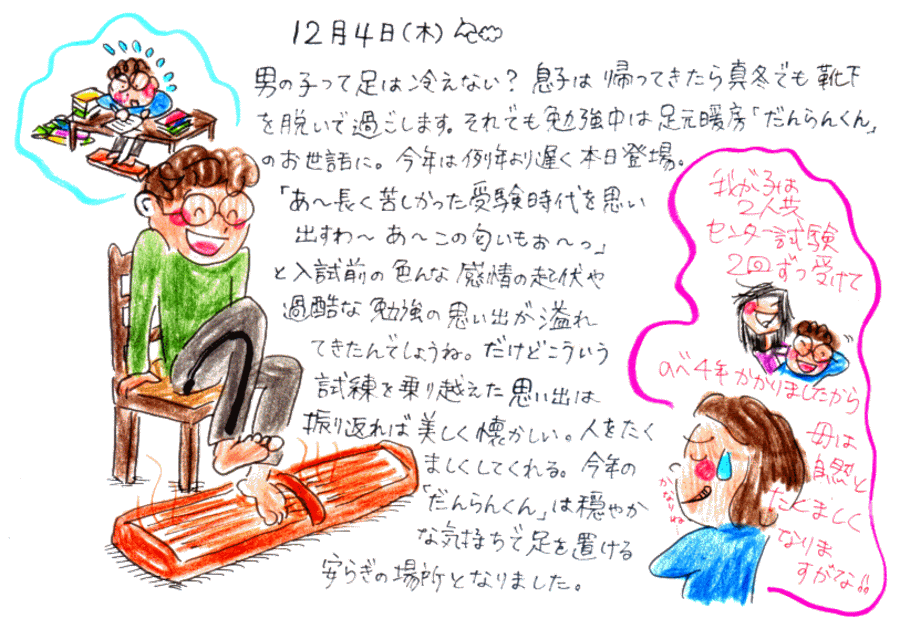 12月4日(木)
男の子って足は冷えない？息子は帰ってきたら真冬でも靴下
を脱いで過ごします。それでも勉強中は足元暖房「だんらんくん」
のお世話に。今年は例年より遅く本日登場。
「あ〜長く苦しかった受験時代を思い
出すわ〜あ〜この匂いもぉ〜っ」
と入試前の色んな感情の起伏や
過酷な勉強の思い出が溢れ
てきたんでしょうね。だけどこういう
試練を乗り越えた思い出は
振り返れば美しく懐かしい。人をたく
ましくしてくれる。今年の
「だんらんくん」は穏やか
な気持ちで足を置ける
安らぎの場所となりました。
我が子は
2人共
センター試験
2回ずつ受けて
のべ4年かかりましたから
母は
自然と
たくましく
なりま
すがな!!
かなりね